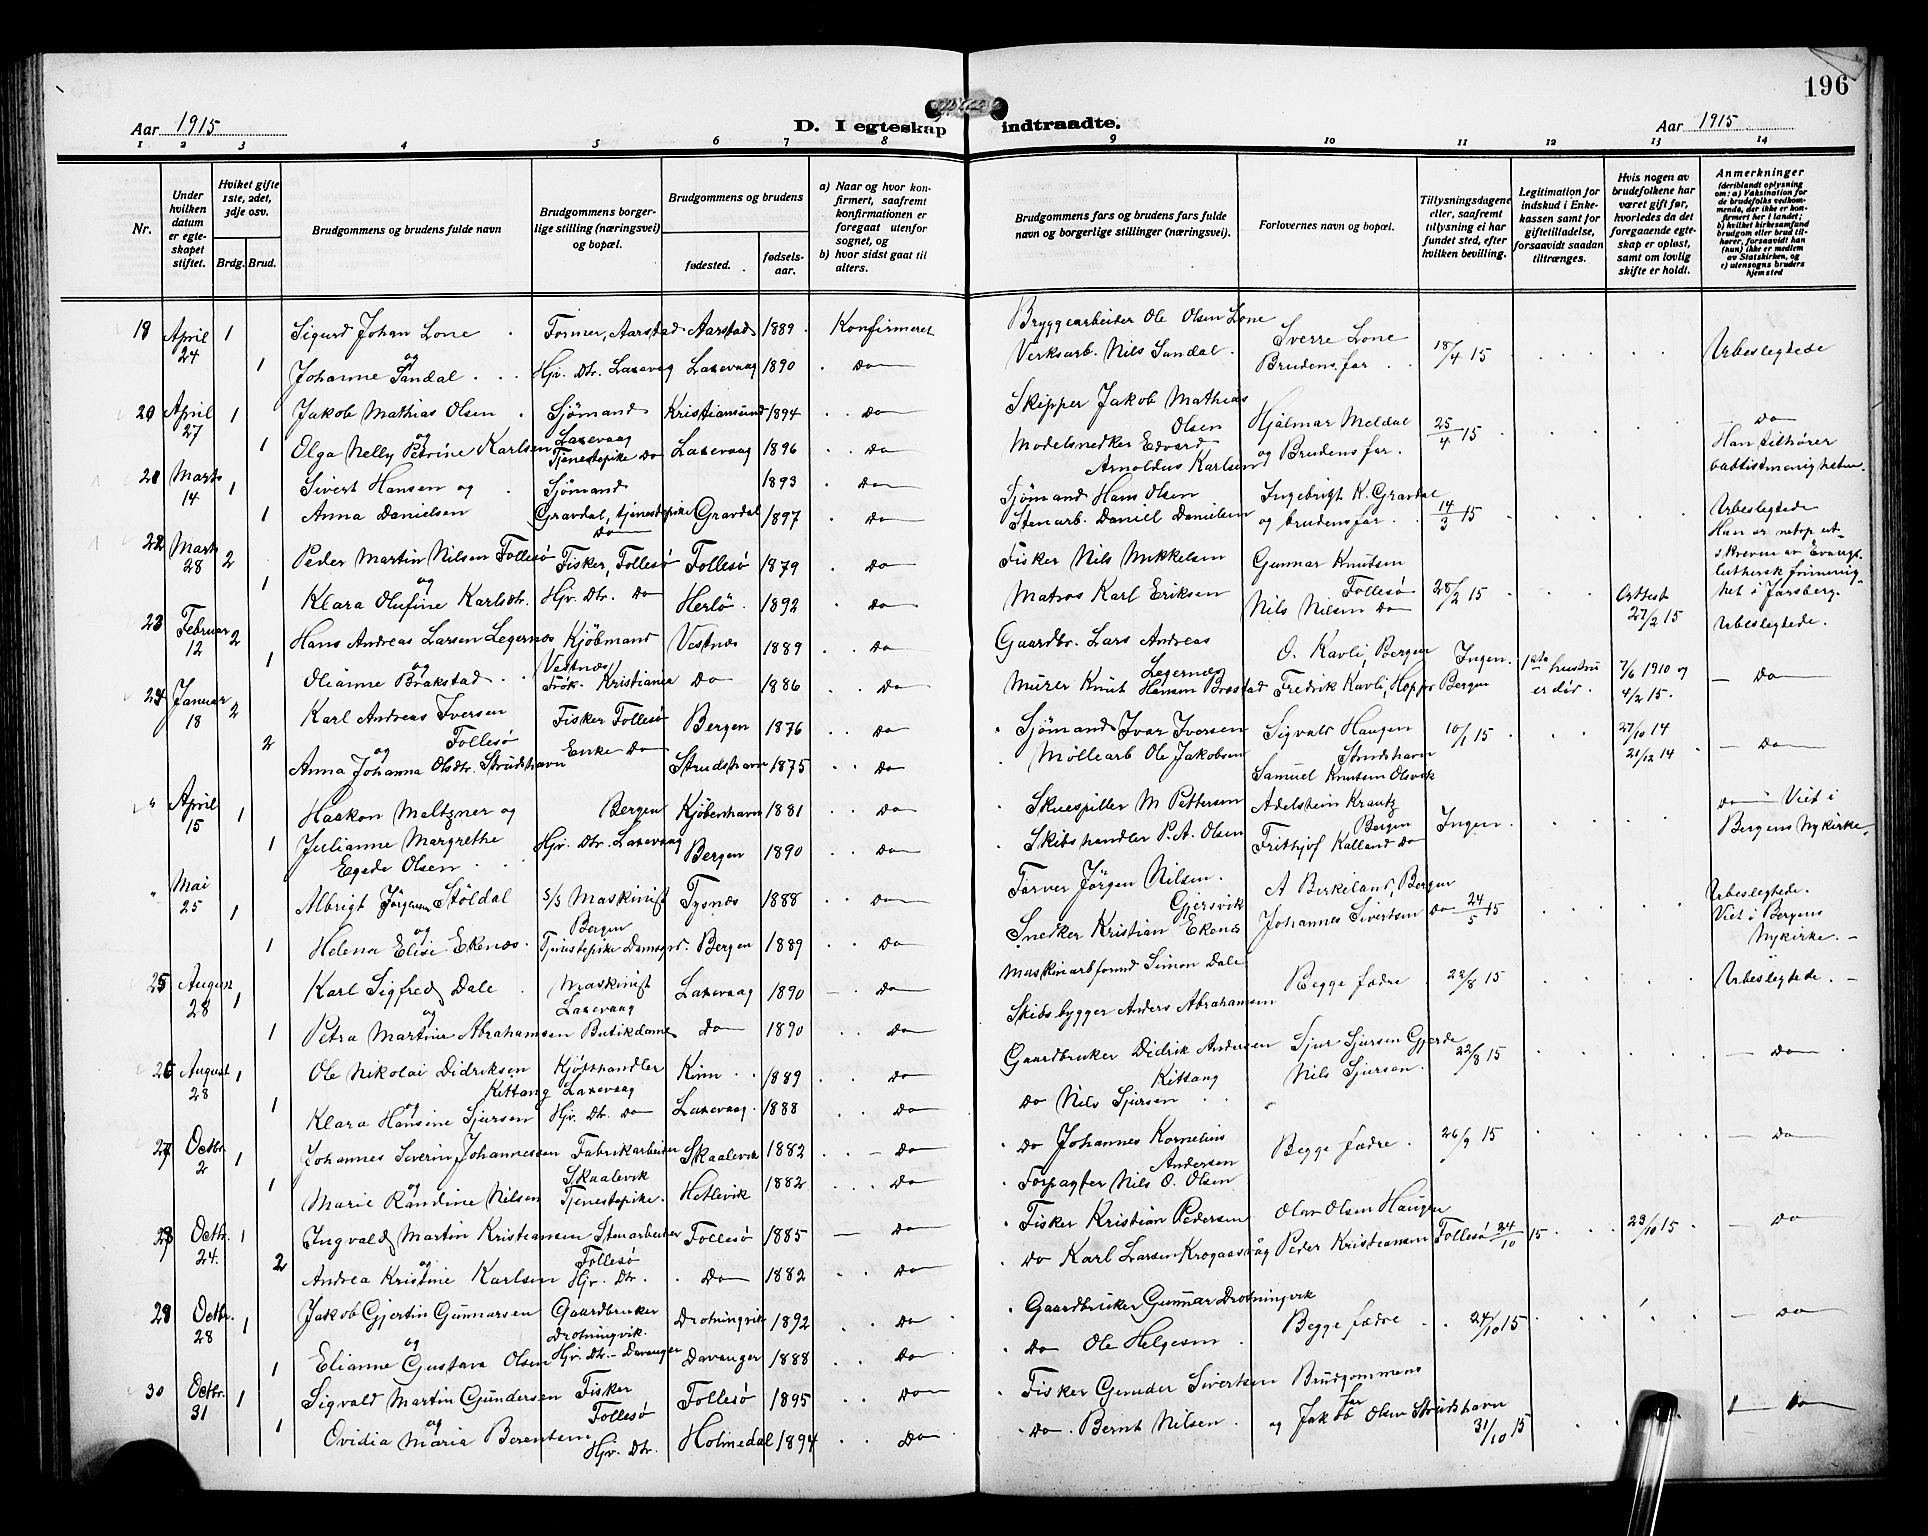 196
Aar 1915
D. I egteskap indtraadte.
Aar 1915
1 2 3 4 5 6 7 8 9 10 11 12 13 14
Nr.
Under hvilken datum er egteskapet stiftet.
Hviket gifte 1ste, 2det, 3dje osv.
Brdg. Brud.
Brudgommens og brudens fulde navn
Brudgommens borgerlige stilling (næringsvei) og bopæl.
Brudgommens og brudens
fødested.
fødselsaar.
a) Naar og hvor konfirmert, saafremt konfirmationen er foregaat utenfor sognet, og
b) hvor sidst gaat til alters.
Brudgommens fars og brudens fars fulde navn og borgerlige stillinger (næringsvei).
Forlovernes navn og bopæl.
Tillysningsdagene eller, saafremt tillysning ei har fundet sted, efter hvilken bevilling.
Legitimation for indskud i Enkekassen samt for giftetilladelse, forsaavidt saadan tiltrænges.
Hvis nogen av brudefolkene har været gift før, hvorledes da det foregaaende egteskap er opløst, samt om lovlig skifte er holdt.
Anmerkninger
(deriblandt oplysning om: a) Vaksination for de brudefolks vedkommende, der ikke er konfirmert her i landet; b) hvilket kirkesamfund brudgom eller brud tilhører, forsaavidt han (hun) ikke er medlem av Statskirken, og c) utensogns bruders hjemsted
18 April 24 1 Sigurd Johan Lone Former, Aarstad Aarstad 1889 Konfirmeret Bryggearbeider Ole Olsen Lone Sverre Lone 18/4 15 Ubeslegtede
og
1 Johanne Sandal Hjv. Dtr. Laxevaag Laxevaag 1890 Do Verksarb. Nils Sandal Brudens far
20 April 27 1 Jakob Mathias Olsen Sjömand Laxevaag Kristiansund 1894 Do Skipper Jakob Mathias Olsen Hjalmar Meldal 25/4 15 Do
og
1 Olga Nelly Petrine Karlsen Tjenestepike Do Laxevaag 1896 Do Modelsnedker Edvard Arnoldus Karlsen og Brudens far. Han tilhører
21 Marts 14 1 Sivert Hansen og Sjömand 1893 Do Sjömand Hans Olsen Ingebrigt K. Gravdal 14/3 15 Ubeslegtede
1 Anna Danielsen Gravdal, tjenestepike Do Gravdal 1897 Do Stenarb. Daniel Danielsen og brudens far.
22 Marts 28 2 Peder Martin Nilsen Follesø Fisker, Follesø Follesø 1879 Do Fisker Nils Mikkelsen Gunnar Knutsen Follesø 28/2 15 Attest 27/2 15 Han er netop utskreven av Evang. luthersk frimenighet i Jarsberg.
og
1 Klara Olufine Karlsdtr. Hjv. Dtr. Do Herlö 1892 Do Matros Karl Eriksen Nils Nilsen Do
23 Februar 12 2 Hans Andreas Larsen Legernæs Kjöbmand Vestnæs Vestnæs 1889 Do Gaardbr. Lars Andreas Legernæs O. Kavli, Bergen Ingen. 1ste hustru er død. 7/6 1910 og 4/2 15. Ubeslegtede.
og
1 Olianne Brakstad Frøk. Kristiania Do 1886 Do Murer Knut Hansen Fredrik Kavli, Hop pr Bergen Do
24 Januar 18 2 Karl Andreas Iversen Follesø Fisker Follesø Bergen 1876 Do Sjömand Ivar Iversen Sigvald Haugen Strudshavn 10/1 15 27/10 14
og
2 Anna Johanna Olsdtr. Strudshavn Enke Do Strudshavn 1875 Do Möllearb Ole Jakobsen Samuel Knutsen Olsvik 21/12 14 Do
" April 15 1 Haakon Meltzner og Bergen Kjöbenhavn 1881 Do Skuespiller M Pettersen Adelstein Krantz Bergen Ingen Do Viet i Bergens Nykirke.
1 Julianne Margrethe Egede Olsen Hjv. Dtr. Laxevaag Bergen 1890 Do Skibshandler P. A. Olsen Frithjof Kalland Do
" Mai 25 1 Albrigt Jørgensen Støldal S/S Maskinist Bergen Tysnæs 1888 Do Farver Jörgen Nilsen Gjersvik A Birkeland, Bergen 24/5 15 Ubeslegtede. Viet i Bergens Nykirke.
og
1 Helena Elise Ekenæs. Tjenestepike Damsgrd. Bergen 1889 Do Snedker Kristian Ekenæs Johannes Sivertsen Do
25 August 28 1 Karl Sigfred Dale Maskinist Laxevaag Laxevaag 1890 Do Maskinarbformd Simon Dale Begge fædre 22/8 15 Ubeslegtede.
og
1 Petra Martine Abrahamsen Butikdame Do 1890 Do Skibsbygger Anders Abrahamsen
26 August 28 1 Ole Nikolai Didriksen Kittang Kjøtthandler Laxevaag Kinn 1889 Do Gaardbruker Didrik Andersen Kittang Sjur Sjursen Gjerde 22/8 15 Do
og
1 Klara Hansine Sjursen Hjv. Dtr. Do Laxevaag 1888 Do Do Nils Sjursen Nils Sjursen
27 Octbr. 2 1 Johannes Severin Johannessen Fabrikarbeider Skaalevik Skaalevik 1882 Do Do Johannes Kornelius Andersen Begge fædre 26/9 15 Do
og
1 Marie Randine Nilsen Tjenestepike. Hetlevik 1882 Do Forpagter Nils O. Olsen
28 Octbr. 24. 1 Ingvald Martin Kristiansen Stenarbeider Follesø Follesø 1885 Do Fisker Kristian Pedersen Olav Olsen Haugen 24/10 15 23/10 15 Do
og
2 Andrea Kristine Karlsen Hjv. Dtr. Do 1882 Do Do Karl Larsen Krogaasvåg Peder Kristiansen Follesø
29 Octbr. 28 1 Jakob Gjertin Gunnarsen Gaardbruker Drotningvik. Drotningvik 1892 Do Gaardbruker Gunnar Drotningvik Begge fædre 24/10 15 Do
og
1 Elianne Gustava Olsen Hjv. Dtr. Davanger Davanger 1888 Do Do Ole Helgesen
30 Octbr. 31 1 Sigvald Martin Gundersen Fisker Follesø Follesø 1895 Do Fisker Gunder Sivertsen Brudgommens far 31/10 15 Do
og
1 Ovidia Maria Berentsen Hjv. Dtr. Holmedal 1894 Do Do. Bernt Nilsen og Jakob Olsen Strudshavn